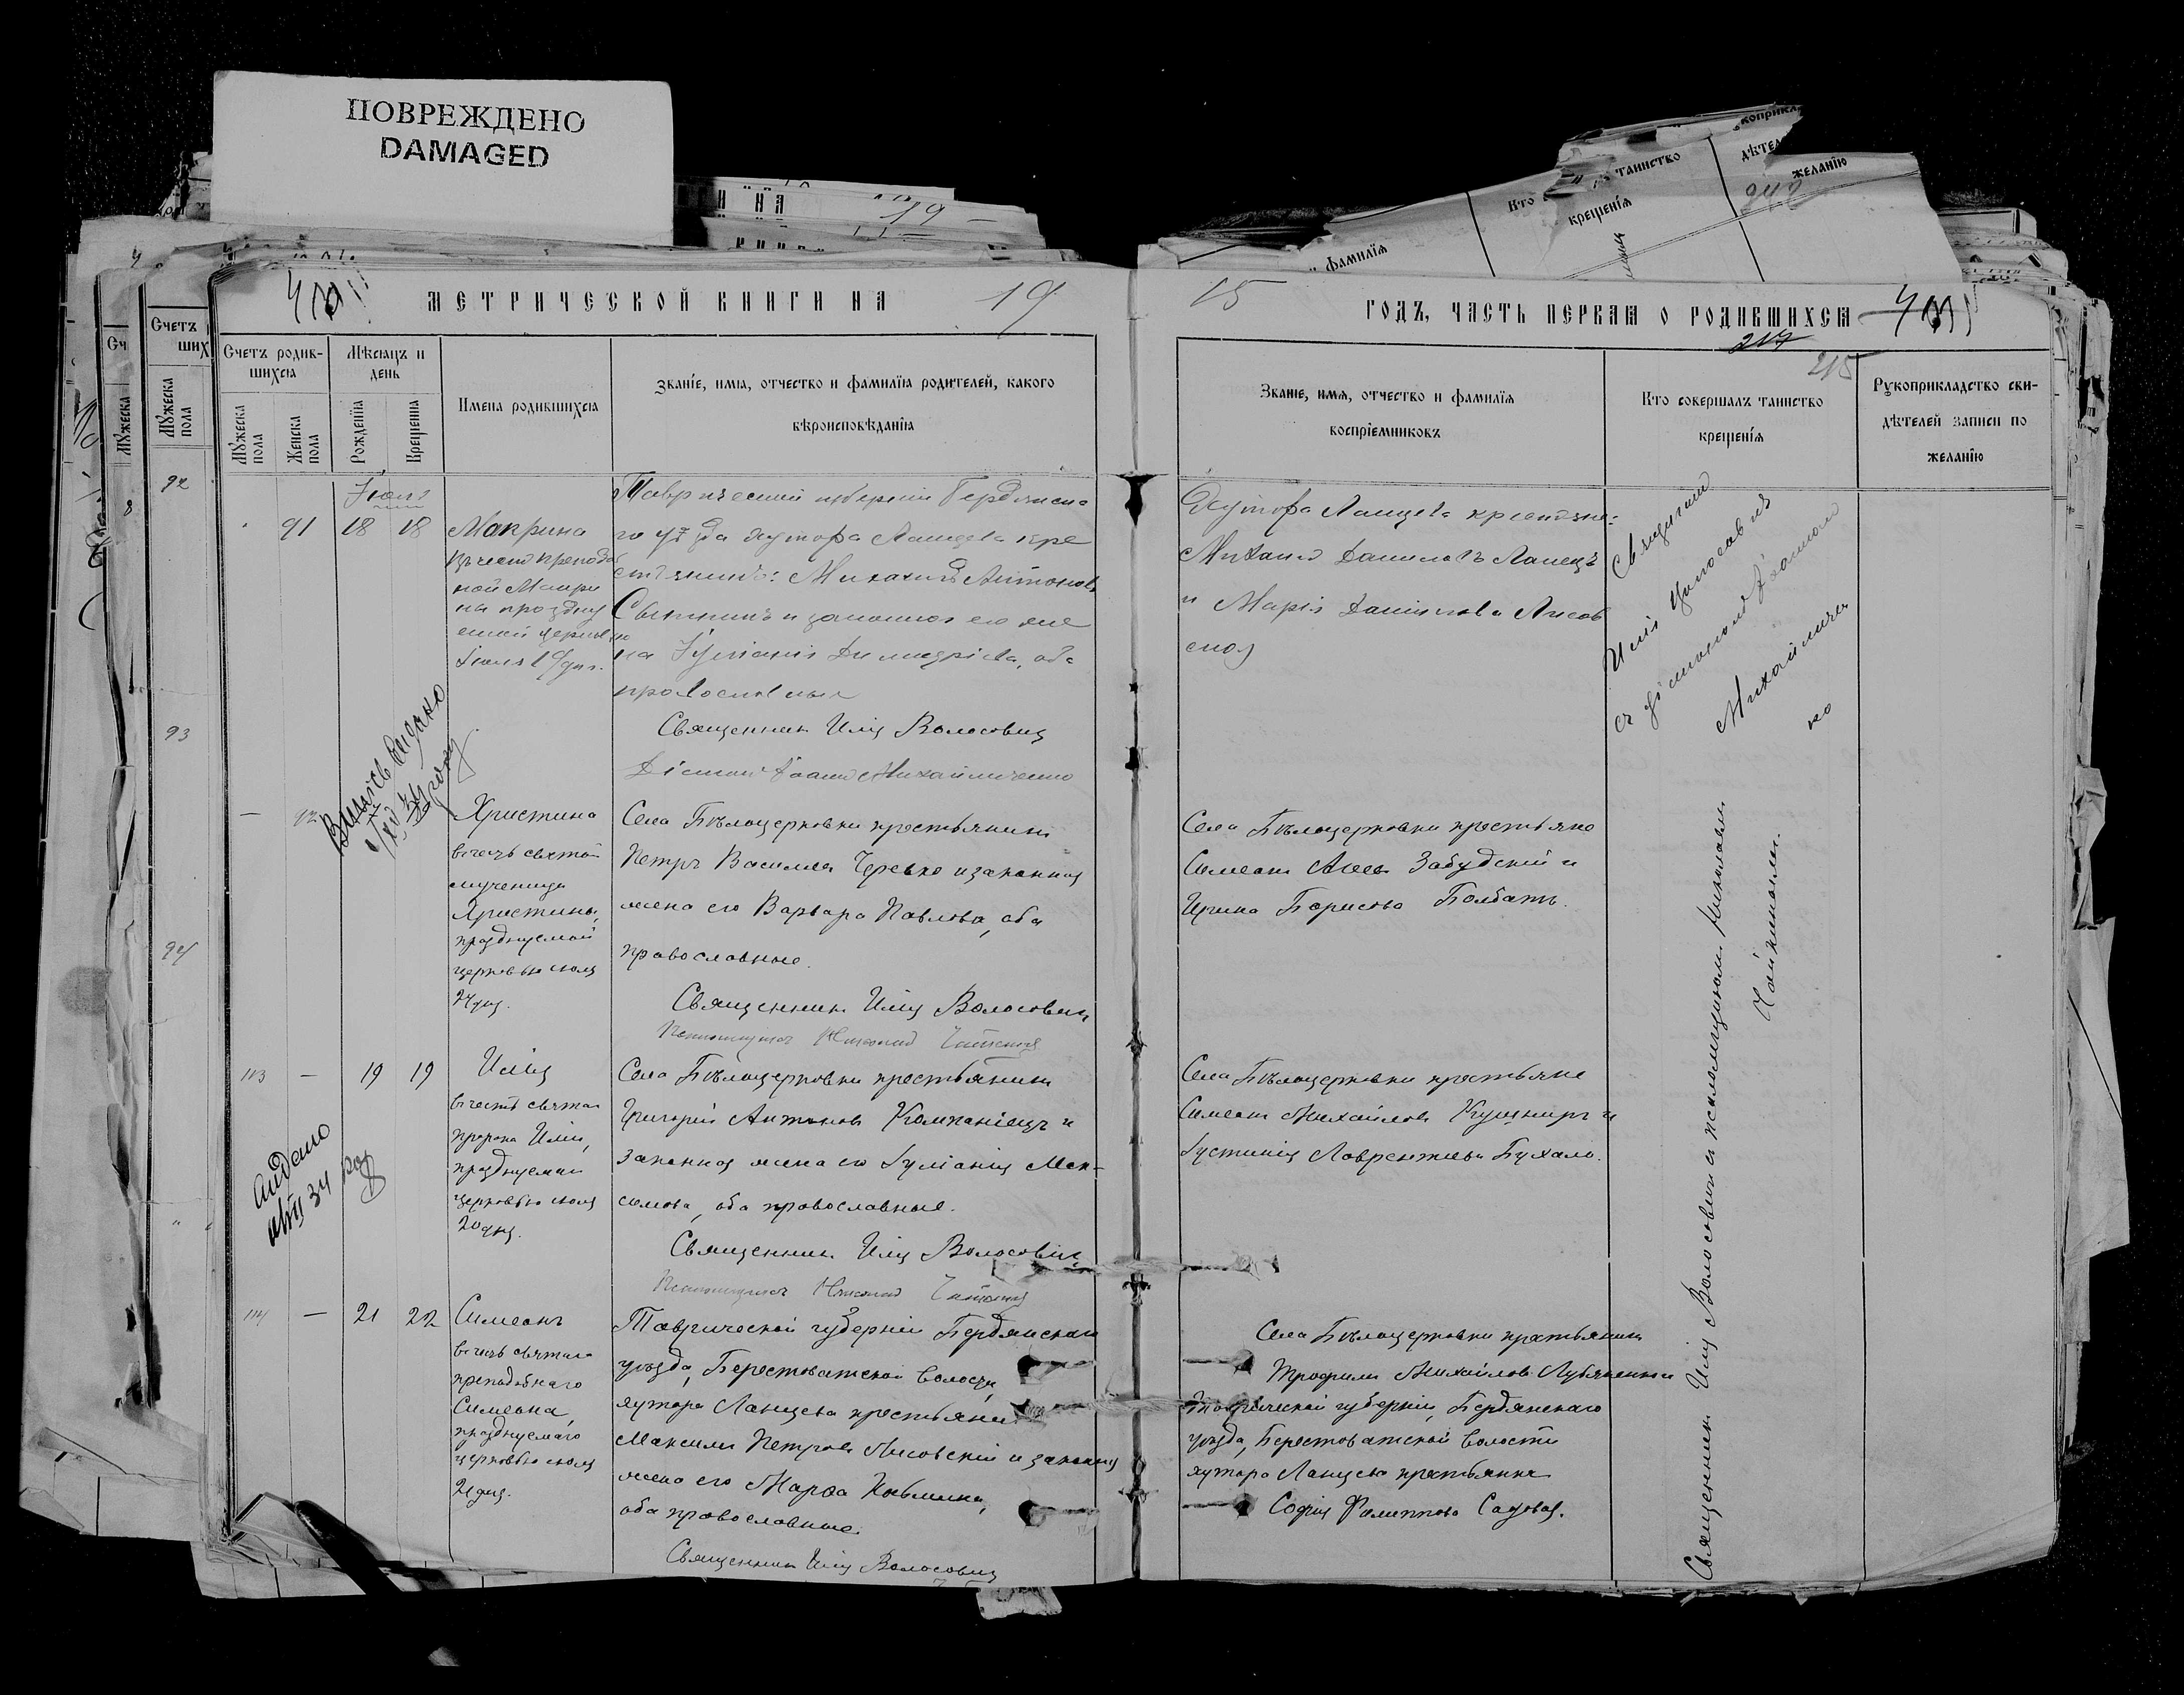 ПОВРЕЖДЕНО
DAMAGED
МЕТРИЧЕСКОЙ КНИГИ НА 19
15 ГОДЪ, ЧАСТЬ ПЕРВАЯ О РОДИВШИХСЯ
215
Счетъ родив-
шихся
Мѣсяцъ и
день
Мужеска
пола
Женска
пола
Рожденїя
Крещенїя
Имена родившихся
Званїе, имя, отчество и фамилїя родителей, какого
вѣроисповѣданїя
Званїе, имя, отчество и фамилїя
воспрїемниковъ
Кто совершалъ таинство
крещенїя
Рукоприкладство сви-
дѣтелей записи по
желанїю
92
93
94
Кто таинство
крещенїя
желанїю
фамилїя
91 18 18 Макрина
Таврической губерніи Бердянска
го уѣзда хутора Ланцева кре
стьянинъ: Михаилъ Антоновъ
и законная его же
на Іуліанія Димитріева, оба
православные
Священник Илія Волосович
Діакон Іоанн Михайличенко
Хутора Ланцева крестьяне:
Михаил Даниловъ Ланецъ
и Марія Данилова Лисов
ская
Священник
Илія Волосович
с діаконом Іоанном
Михайличен
ко
— 92 Христина
в честь святой
мученицы
Христины,
празднуемой
церковью июля
24 дня.
Села Бѣлоцерковки крестьянин
Петръ Васильев Черевко и законная
жена его Варвара Павлова, оба
православные.
Священник Илія Волосович
Псаломщик Николай
Села Бѣлоцерковки крестьяне
Симеон Забудский и
Ирина Борисова Болбатъ.
113 — 19 19 Илія
в честь святаго
пророка Иліи,
празднуемаго
церковью июля
20 дня.
Села Бѣлоцерковки крестьянин
Григорій Антонов Компаніецъ и
законная жена его Іуліанія Мак-
симова, оба православные.
Священник Илія Волосович
Псаломщик Николай
Села Бѣлоцерковки крестьяне
Симеон Михайлов Кушниръ и
Іустинія Лаврентьева Бухало.
114 — 21 22 Симеонъ
в честь святаго
преподобнаго
Симеона,
празднуемаго
церковью июля
21 дня.
Таврической губерніи Бердянскаго
уѣзда, Берестоватской волости,
хутора Ланцева крестьянин
Максим Петров Лисовскій и законная
жена его Марфа
оба православные.
Священник Илія Волосович
Села Бѣлоцерковки крестьянин
Трофим Михайлов Лубяненко и
Таврической губерніи, Бердянскаго
уѣзда, Берестоватской волости
хутора Ланцева крестьянка
Софія Филиппова Садовая.
Священник Илія Волосович и псаломщиком Николаем